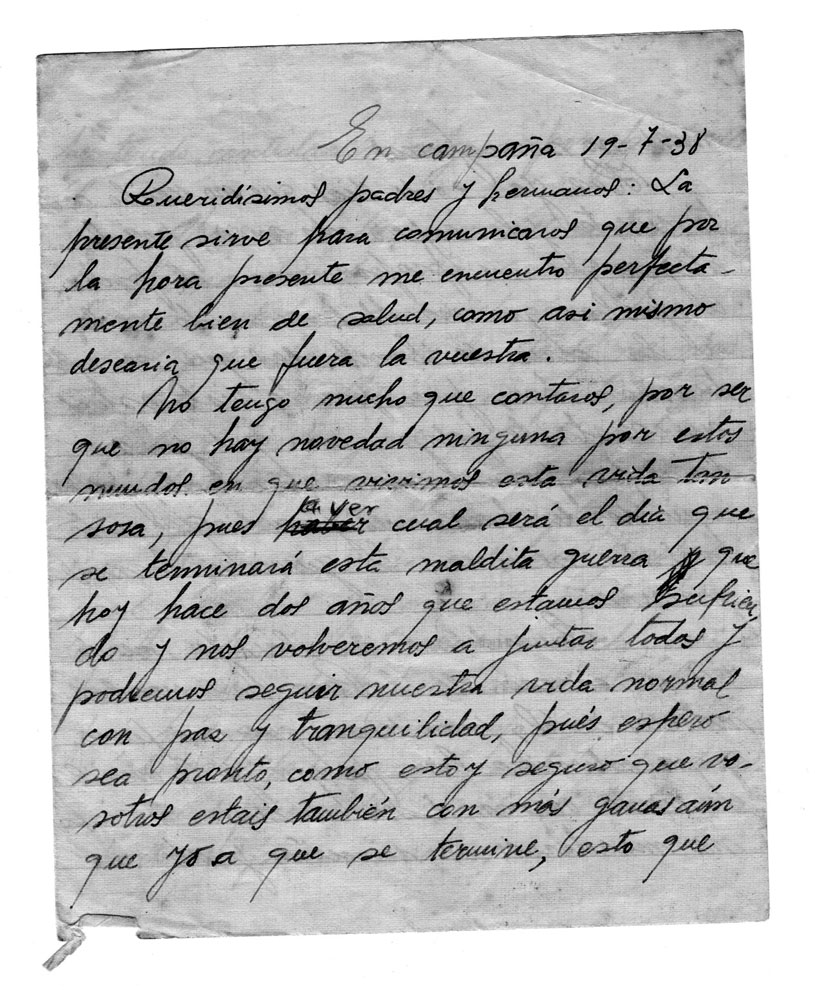 En campaña 19-7-38
Queridísimos padres y hermanos: La
presente sirve para comunicaros que por
la hora presente me encuentro perfecta-
mente bien de salud, como asi mismo
desearia que fuera la vuestra.
No tengo mucho que contaros, por ser
que no hay novedad ninguna por estos
mundos en que vivimos esta vida tan
sosa, pues a ver cual será el dia que
se terminará esta maldita guerra que
hoy hace dos años que estamos sufrien
do y nos volveremos a juntar todos y
podremos seguir nuestra vida normal
con paz y tranquilidad, pués espero
sea pronto, como estoy seguro que vo-
sotros estais también con más ganas aún
que yo a que se termine, esto que